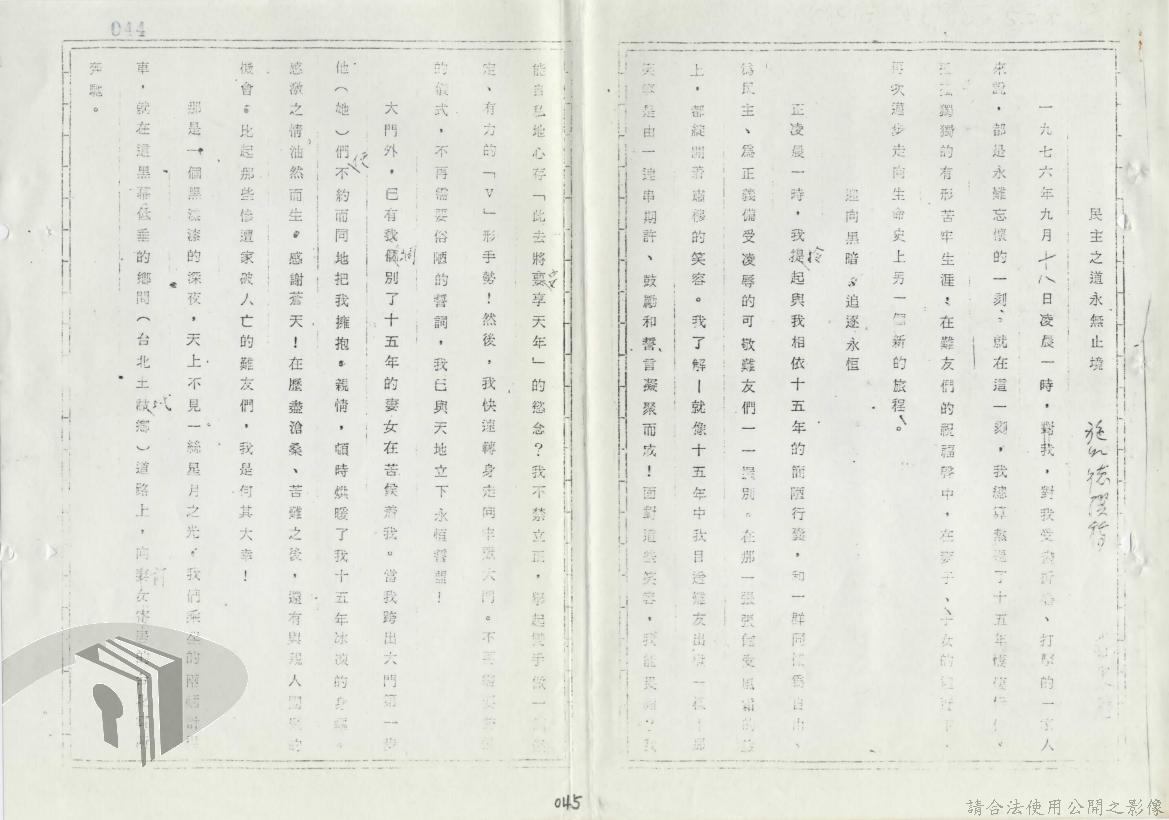 044
民主之道永無止境
施
一九七六年九月十八日凌晨一時，對我，對我受盡折磨、打擊的一家人
來說，都是永難忘懷的一刻。就在這一刻，我總算熬過了十五年
獨獨的有形苦牢生涯；在難友們的祝福聲中，在妻子、子女的
再次邁步走向生命史上另一個新的旅程。
迎向黑暗，追逐永恒
正凌晨一時，我提拾起與我相依十五年的簡陋行囊，和一群同樣為自由、
為民主、為正義備受凌辱的可敬難友們一一握別。在那一張張飽受風霜的臉
上，都綻開着肅穆的笑容。我了解—就像十五年中我目送難友出獄一樣—那
笑容是由一連串期許、鼓勵和誓言凝聚而成！面對這些笑容，我能
能自私地心存「此去將要安享天年」的慾念？我不禁立正，舉起雙手做一個
定、有力的「V」形手勢！然後，我快速轉身走向牢獄大門。不再需要
的儀式，不再需要俗陋的誓詞，我已與天地立下永恒誓盟！
大門外，已有數個別了十五年的妻女在苦候着我。當我跨出大門第一步
他（她）們便不約而同地把我擁抱。親情，頓時烘暖了我十五年冰凉的身軀。
感激之情油然而生。感謝蒼天！在歷盡滄桑、苦難之後，還有與親人團聚的
機會。比起那些慘遭家破人亡的難友們，我是何其大幸！
那是一個黑漆漆的深夜，天上不見一絲星月之光。我們乘座的兩輛計程
車，就在這黑幕低垂的鄉間（台北土城鄉）道路上，向妻女寄居的
奔馳。
045
請合法使用公開之影像